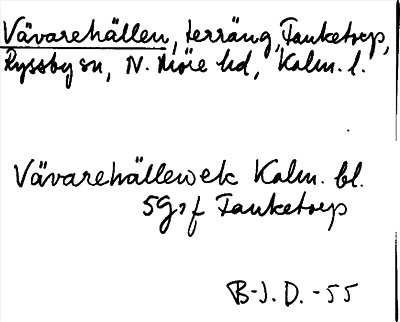 Vävarehällen, terräng, Tanketorp,
Ryssby sn, N. Möre hd, Kalm. l.
Vävarehällen ek Kalm. bl.
5G7f Tanketorp
B-J. D. -55